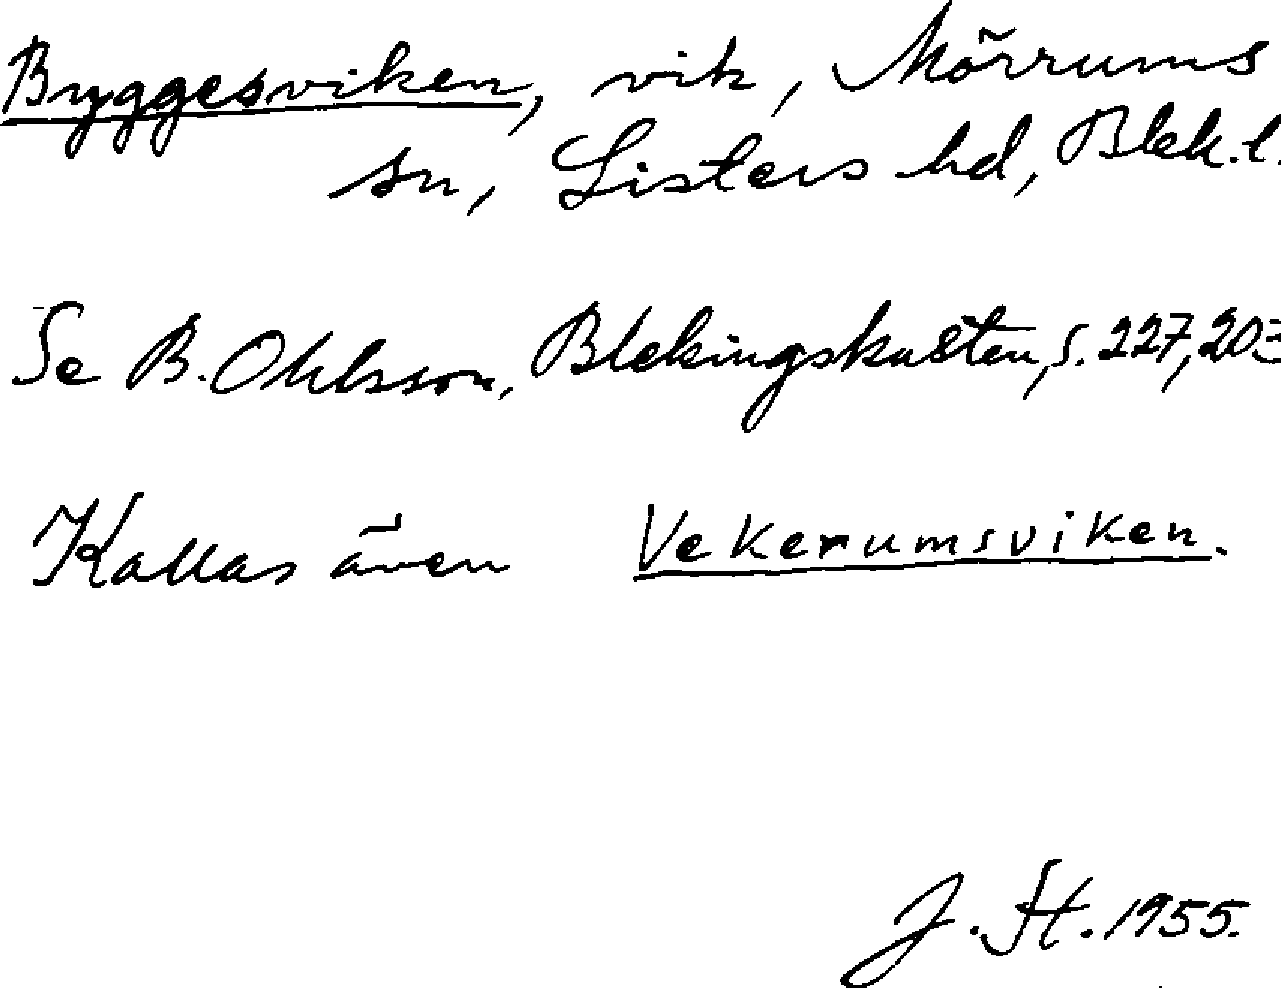 Byggesviken, vik, Mörrums
sn, Listers hd, Blek. l.
Se B. Ohlsson, Blekingskusten, s. 227, 203
Kallas även Vekerumsviken.
J. St. 1955.